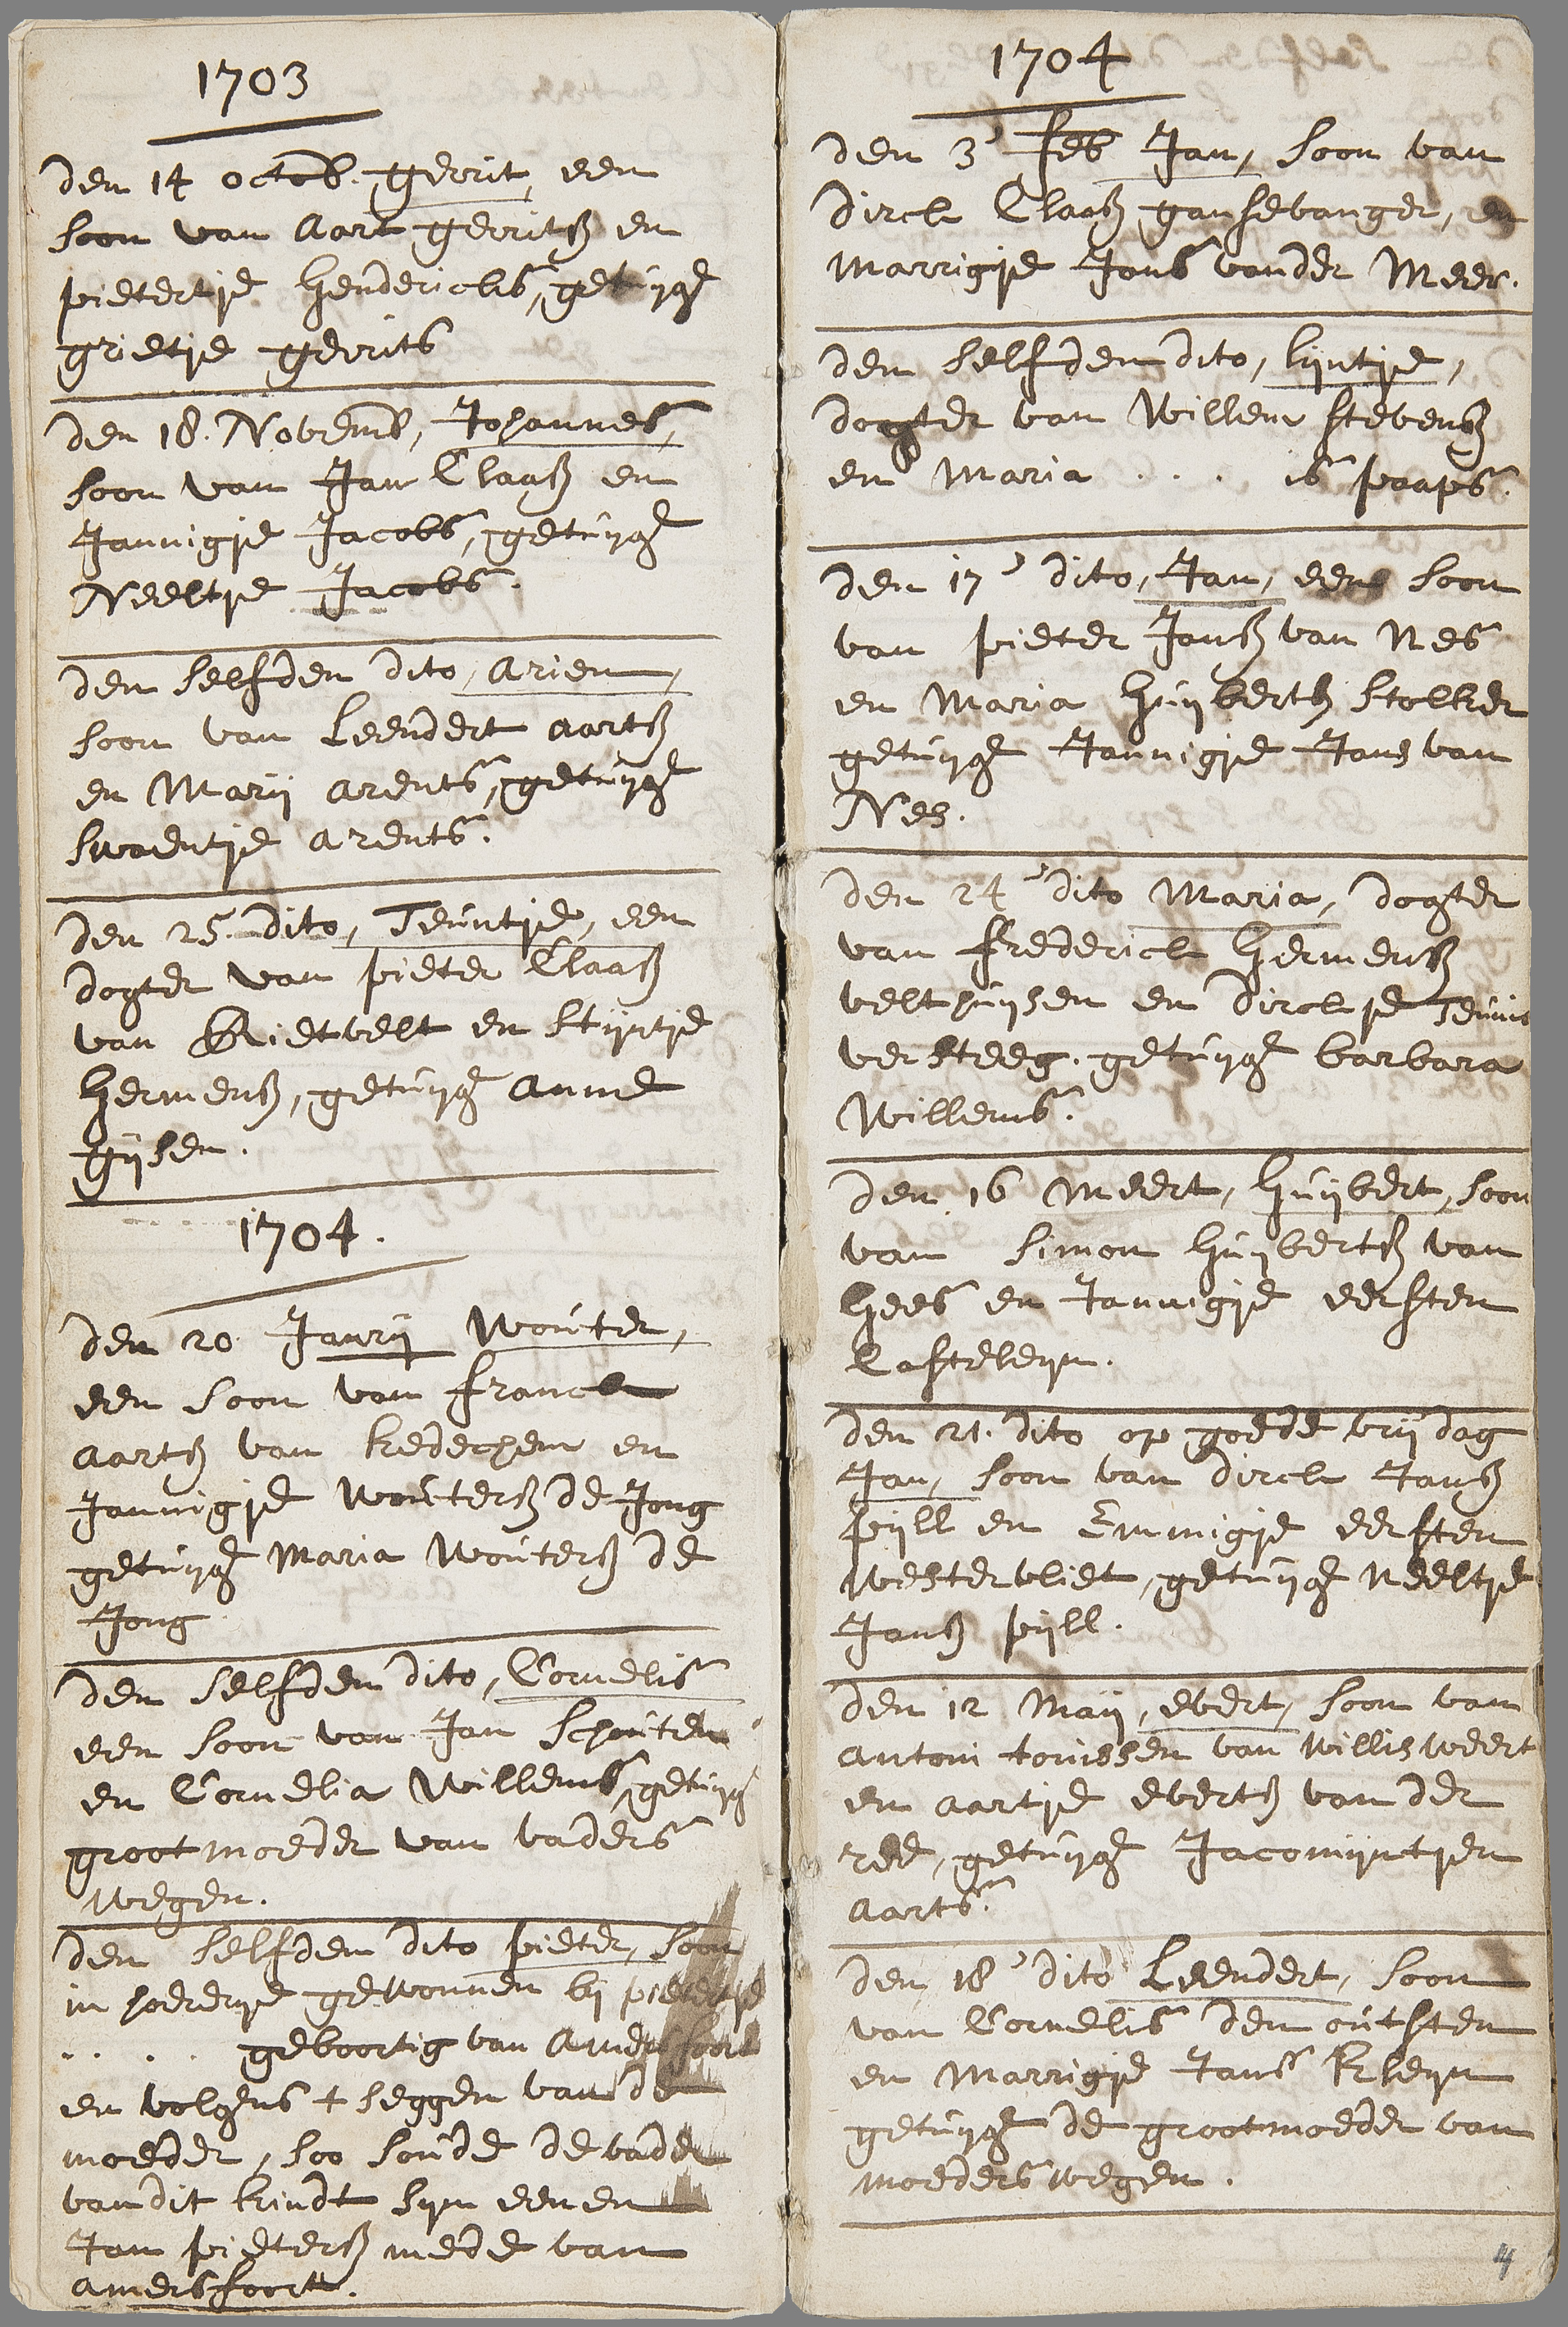 1703
den 14 octob. gerrit, een
soon van Aart gerritsz en
pietertje Hendericks, getuyge
grietje gerrits
den 18. Novemb, Johannes,
soon van Jan Claasz en
Jannigje Jacobs, getuyge
Neeltje Jacobs.
den selfden dito, Arien,
soon van Leendert aartsz
en Marij arents, getuyge
Swaentje arents.
den 25. dito, Teuntje, een
dogter van pieter Claasz
van Rietvelt en Stijntje
Hermensz, getuyge anne
gijsen.
1704.
den 20 Janrij Wouter,
een soon van franck
aartsz van kederhem en
Jannigje Woutersz de Jong
getuyge Maria Woutersz de
Jong
den selfden dito, Cornelis
een soon van Jan Schouten
en Cornelia Willems, getuyge
grootmoeder van vaders
wegen.
den selfden dito pieter, soon
in hoererije gewonnen bij pietertje
. . . . geboortig van Amersfoort
en volgens t seggen van de
moeder, soo soude de vader
van dit kindt sijn eenen
Jan pietersz mede van
amersfoort.
1704
den 3 feb Jan, soon van
dirck Claasz gansevanger, en
Marrigje Jans vander Meer.
den selfden dito, lijntje,
dogter van Willem stevensz
en Maria . . . is paaps.
den 17 dito, Jan, een soon
van pieter Jansz van Nes
en Maria Huybertsz Stolker
getuyge Jannigje Jans van
Nes.
den 24 dito Maria, dogter
van frederick Hermensz
velthuysen en dirckje Teunis
versteeg. getuyge barbara
Willems.
den 16 Meert, Huybert, soon
van Simon Huybertsz van
Hees en Jannigje eersten
Casteleyn.
den 21. dito op goede vrijdag
Jan, soon van dirck Jansz
pijll en Emmigje eersten
Westervliet, getuyge Neeltje
Jansz pijll.
den 12 Maij, evert, soon van
antoni tonissen van Willisweert
en aartje evertsz vander
ree, getuyge Jacomijntjen
aarts.
den 18 dito Leendert, soon
van Cornelis den outsten
en Marrigje Jans Kleyn
getuyge de grootmoeder van
moeders wegen.
4